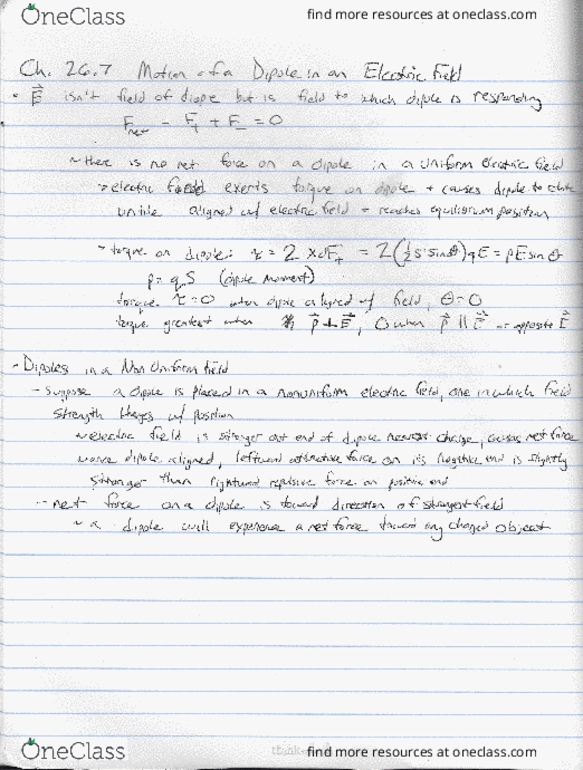 OneClass
find more resources at oneclass.com
Ch. 26.7 Motion of a Dipole in an Electric Field
• E⃗ isn't field of dipole but is field to which dipole is responding
Fnet = F₊ + F₋ = 0
~ there is no net force on a dipole in a uniform electric field
→ electric field exerts torque on dipole + causes dipole to rotate
until aligned w/ electric field + reaches equilibrium position
- torque on dipole: τ = 2 × dF₊ = 2(½ s sinθ)qE = pE sin θ
p = qS (dipole moment)
torque τ = 0 when dipole aligned w/ field, θ = 0
torque greatest when p⃗ ⊥ E⃗, 0 when p⃗ || E⃗ or opposite E⃗
- Dipoles in a Non Uniform field
- Suppose a dipole is placed in a nonuniform electric field, one in which field
strength changes w/ position
electric field is stronger at end of dipole nearest charge, causes net force
once dipole aligned, leftward attractive force on its negative end is slightly
stronger than rightward repulsive force on positive end
- net force on a dipole is toward direction of strongest field
~ a dipole will experience a net force toward any charged object
OneClass
find more resources at oneclass.com